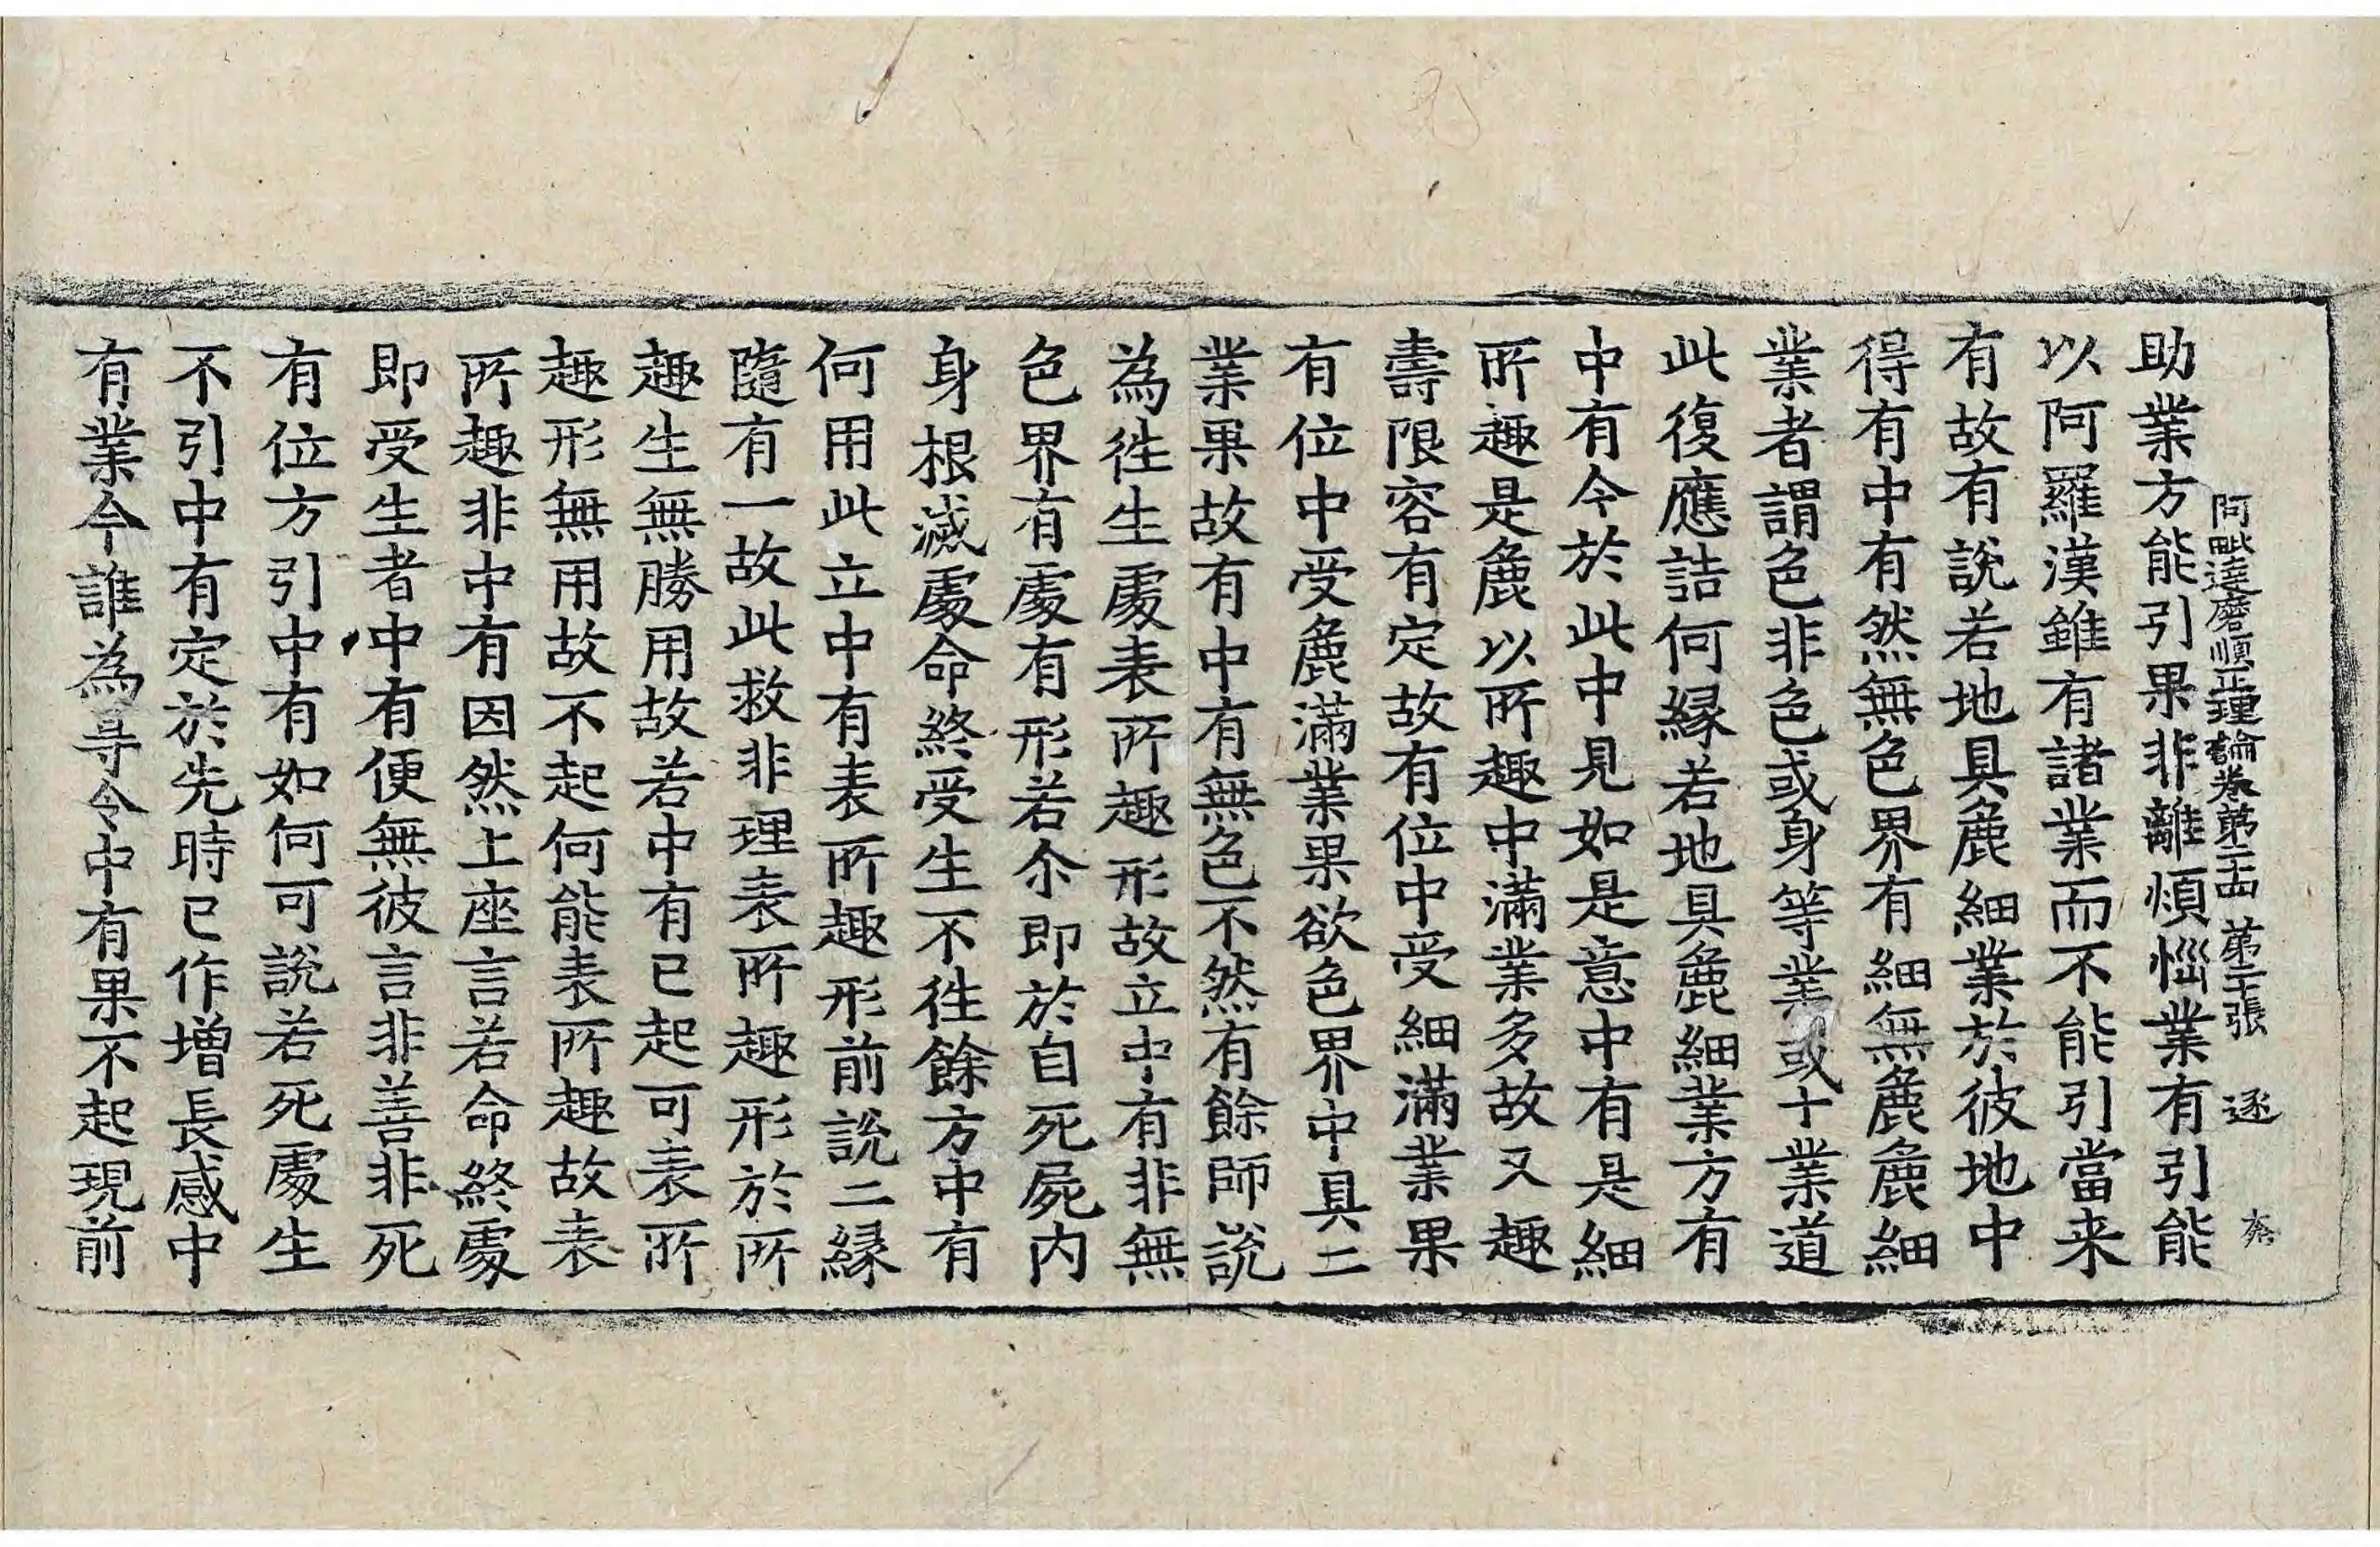 阿毗達磨順正理論卷第二十四 第二十張 逐
助業方能引果非離煩惱業有引能
以阿羅漢雖有諸業而不能引當来
有故有說若地具麁細業於彼地中
得有中有然無色界有細無麁麁細
業者謂色非色或身等業或十業道
此復應詰何縁若地具麁細業方有
中有今於此中見如是意中有是細
所趣是麁以所趣中滿業多故又趣
壽限容有定故有位中受細滿業果
有位中受麁滿業果欲色界中具二
業果故有中有無色不然有餘師說
為徃生處表所趣形故立中有非無
色界有處有形若尒即於自死屍内
身根滅處命終受生不徃餘方中有
何用此立中有表所趣形前說二縁
隨有一故此救非理表所趣形於所
趣生無勝用故若中有已起可表所
趣形無用故不起何能表所趣故表
所趣非中有因然上座言若命終處
即受生者中有便無彼言非善非死
有位方引中有如何可說若死處生
不引中有定於先時已作增長感中
有業今誰為㝵令中有果不起現前